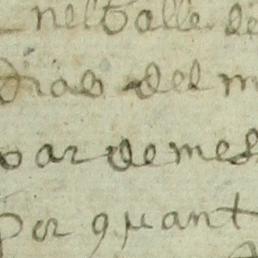 nel balle de
dias del m
par de mes
por quant